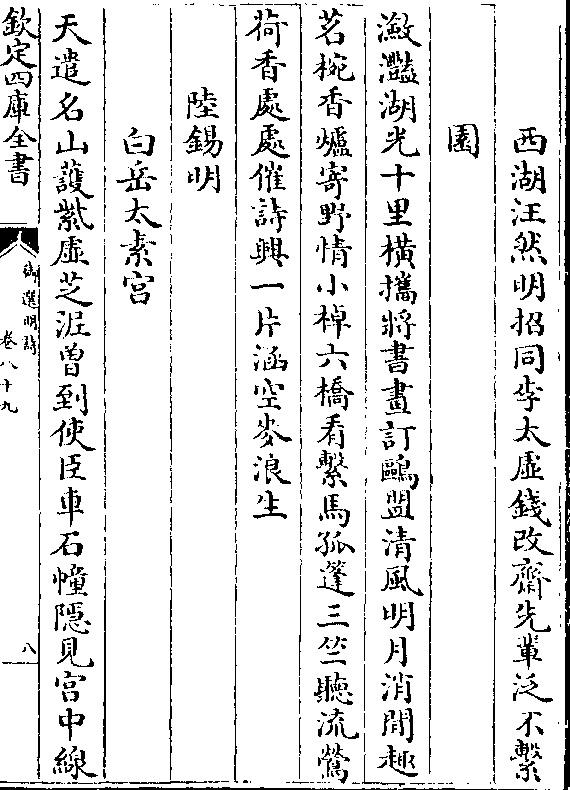 西湖汪然明招同李太虛錢改齋先輩泛不繫
園
瀲灩湖光十里橫攜將書畫訂鷗盟清風明月消閒趣
茗椀香爐寄野情小棹六橋看繫馬孤蓬三竺聽流鶯
荷香處處催詩興一片涵空麥浪生
陸錫明
白岳太素宮
天遣名山護紫虛芝泥曾到使臣車石幢隱見宮中線
欽定四庫全書
御選明詩
卷八十九
八